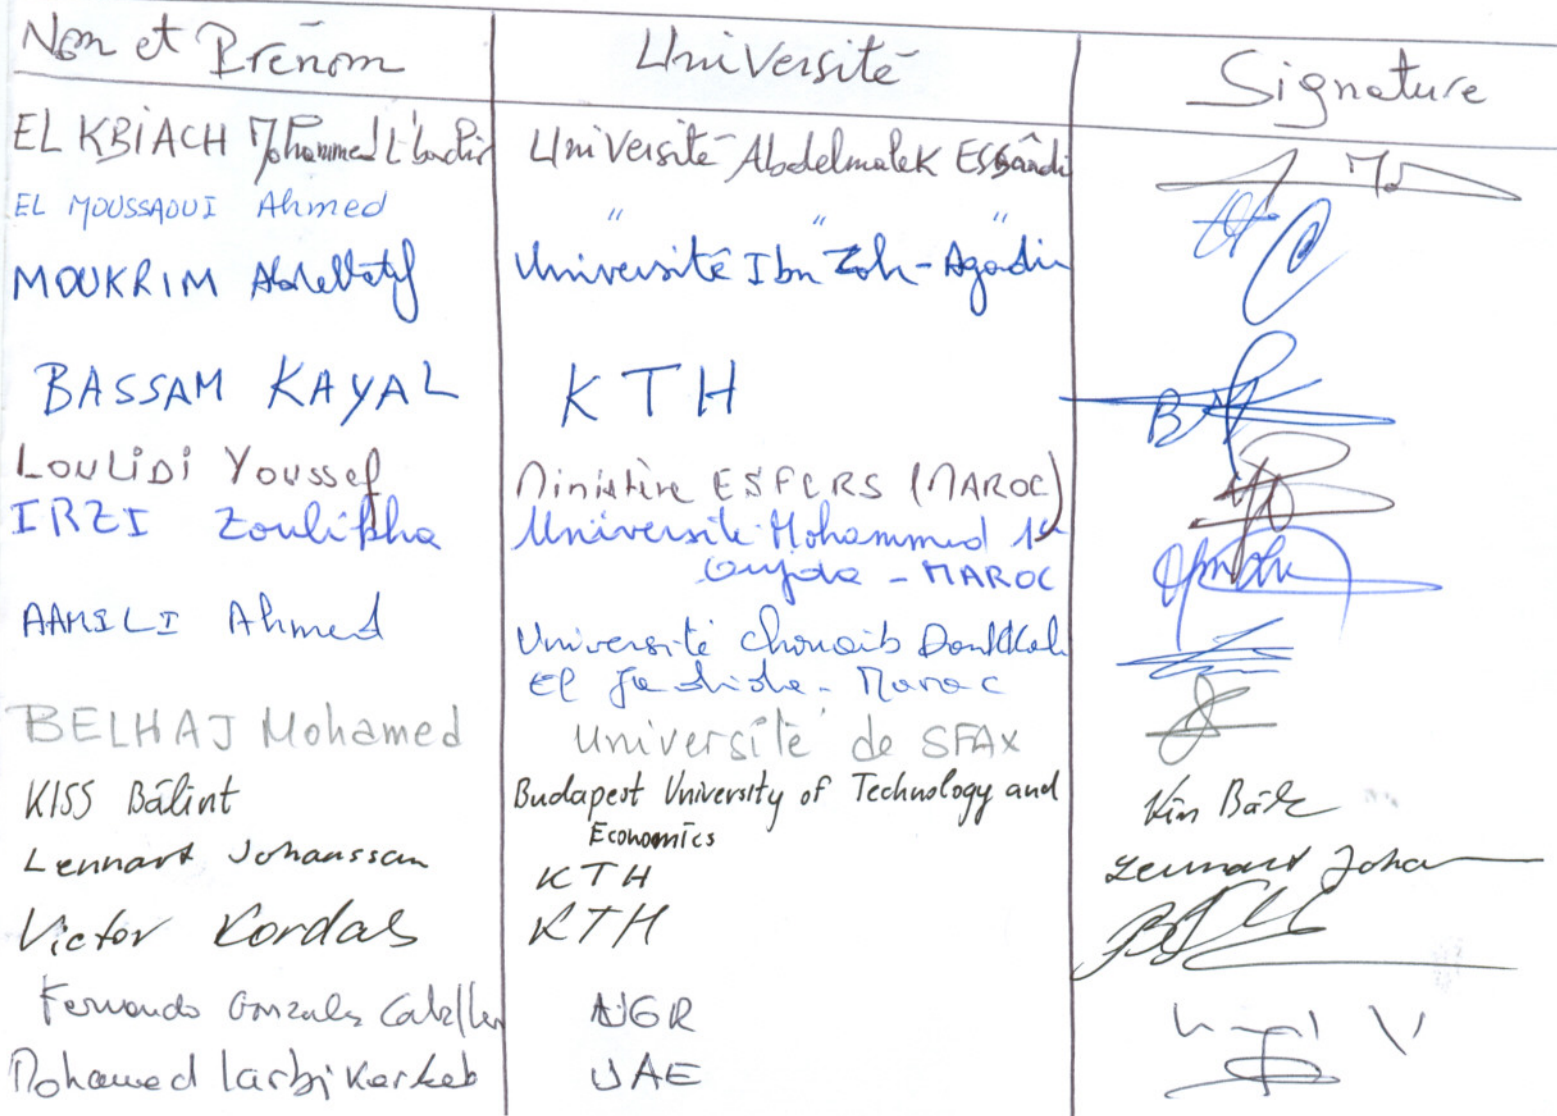 Nom et Prénom Université Signature
EL KBIACH Mohammed L'bachir Université Abdelmalek Essâadi
EL MOUSSAOUI Ahmed " " "
MOUKRIM Abdellatif Université Ibn Zohr - Agadir
BASSAM KAYAL KTH
LOULIDI Youssef Ministère ESFCRS (MAROC)
IRZI Zoulikha Université Mohammed 1er
Oujda - MAROC
AAMILI Ahmed Université Chouaib Doukkali
El Jadida - Maroc
BELHAJ Mohamed Université de SFAX
KISS Bálint Budapest University of Technology and Kiss Bálint
Economics
Lennart Johansson KTH Lennart Joha
Victor Kordas KTH
Fernando Gonzales UGR
Mohamed larbi Kerkeb UAE